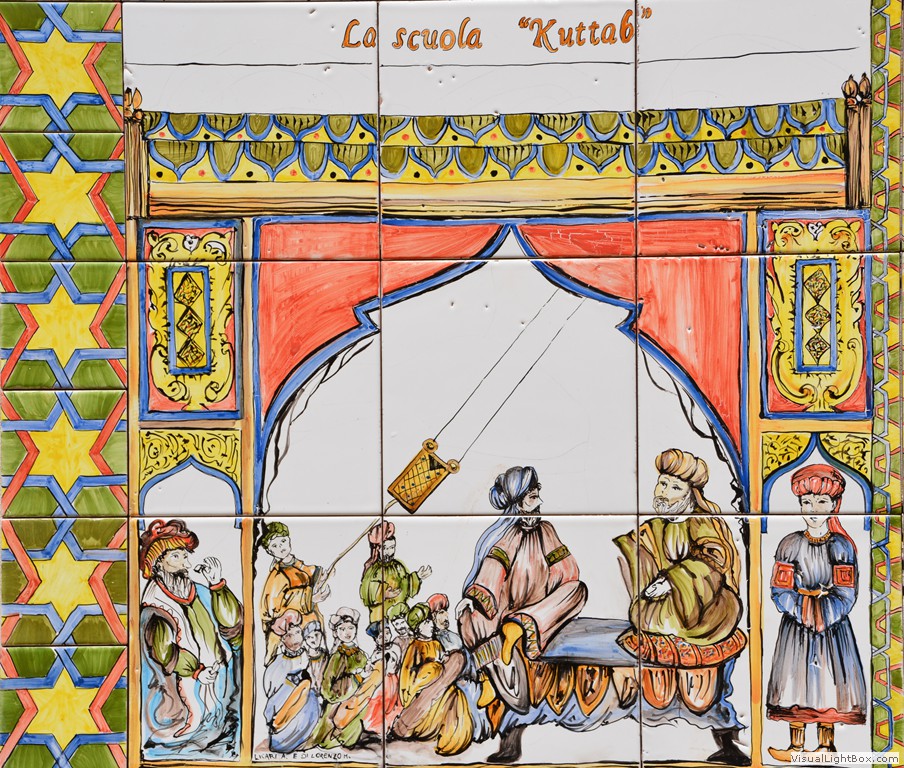 La scuola "Kuttab"
LICARI A. E DI LORENZO M.
VisualLightBox.com